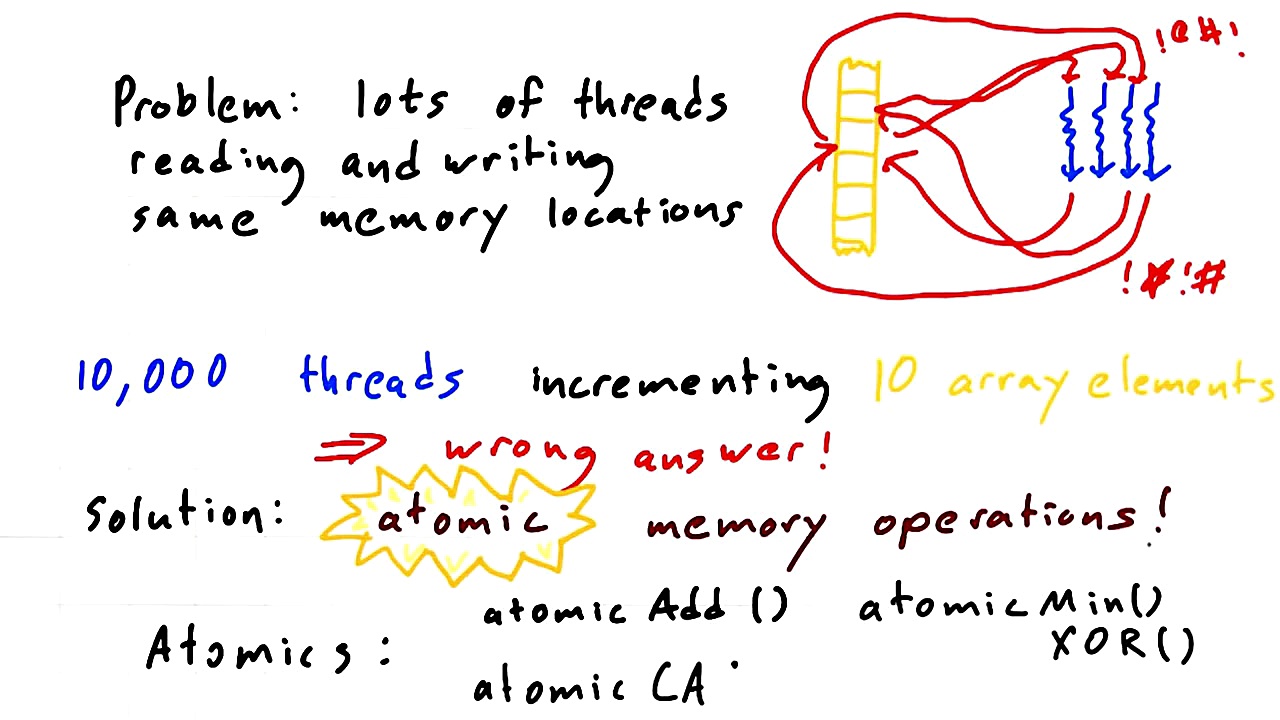 !@#!
Problem: lots of threads
reading and writing
same memory locations
!*!#
10,000 threads incrementing 10 array elements
⇒ wrong answer!
Solution: atomic memory operations!
Atomics: atomic Add () atomic Min()
XOR()
atomic CA